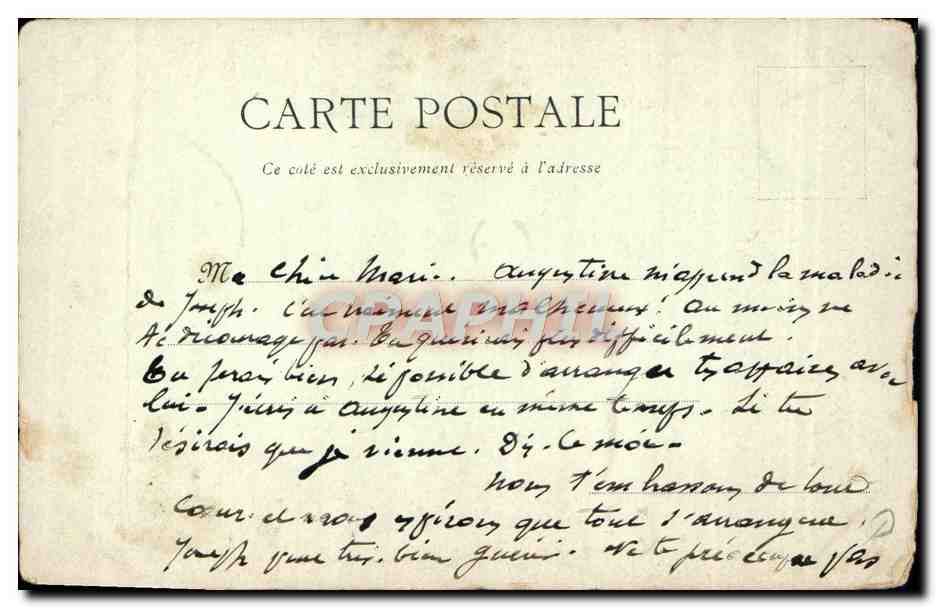 CARTE POSTALE
Ce coté est exclusivement réservé à l'adresse
Ma chère Marie. Augustine m'apprend la maladie
de Joseph. C'est vraiment malheureux! Au moins ne
te décourage pas. Tu guérirais plus difficilement.
Tu ferais bien, si possible d'arranger tes affaires avec
lui. J'écris à Augustine en même temps. Si tu
désirais que je vienne. Dis-le moi.
Nous t'embrassons de tout
Coeur et nous espérons que tout s'arrangera.
Joseph peut très bien guérir. Ne te préoccupe pas
CPAPHIL